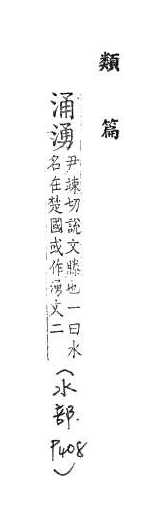 類篇
涌湧尹竦切說文滕也一曰水
名在楚國或作湧文二
(水部.P408)